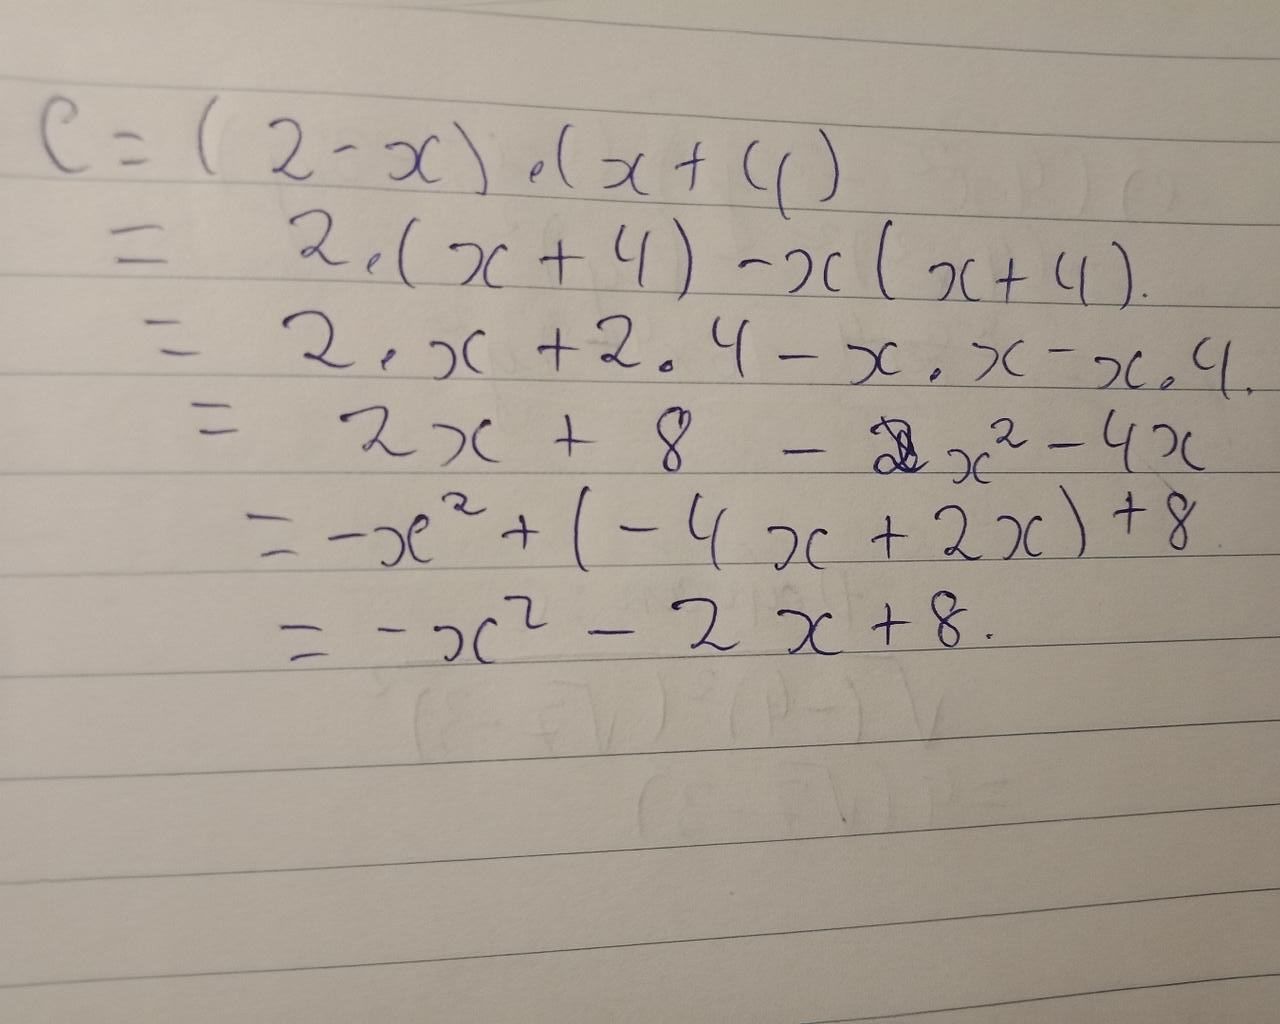 C = (2 - x) . (x + 4)
= 2 . (x + 4) - x (x + 4).
= 2 . x + 2 . 4 - x . x - x . 4.
= 2x + 8 - x² - 4x
= -x² + (-4x + 2x) + 8
= -x² - 2x + 8.